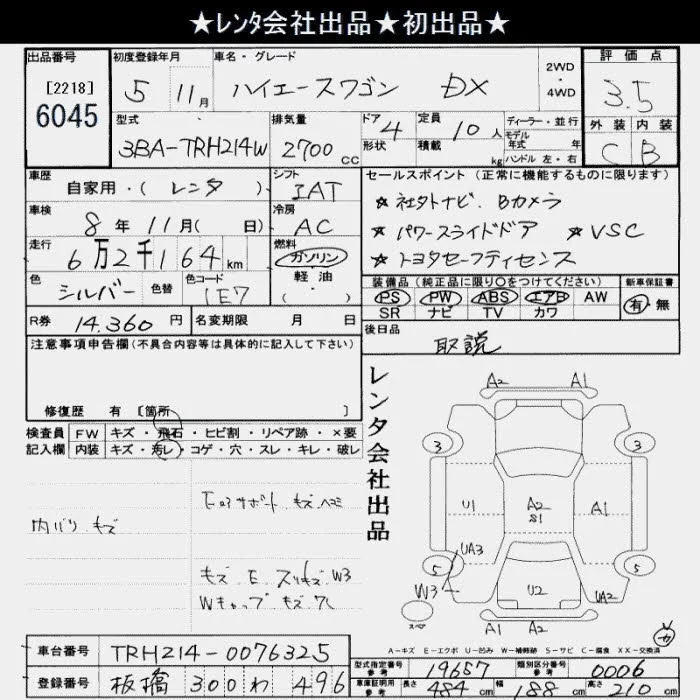 ★レンタ会社出品★初出品★
出品番号 初度登録年月 車名・グレード 評価点
[2218] 6045 5 11月 ハイエースワゴン DX 2WD・4WD 3.5
型式 排気量 ドア 定員 ディーラー・並行 外装 内装
3BA-TRH214W 2700cc 4 形状 10人 積載 kg モデル年式 年 ハンドル 左・右 C B
車歴 自家用・(レンタ) シフト IAT セールスポイント(正常に機能するものに限ります)
車検 8年11月( 日) 冷房 AC ★社外ナビ.Bカメラ
走行 6万2千164km 燃料 ガソリン ★パワースライドドア ★VSC
軽油・( ) ★トヨタセーフティセンス
色 シルバー 色替 色コード 1E7 装備品(純正品に限り○をつけてください) 新車保証書
PS PW ABS エアB AW 有・無
SR ナビ TV カワ
R券 14.360円 名変期限 月 日 後日品
取説
注意事項申告欄(不具合内容等は具体的に記入して下さい)
修復歴 有 [箇所 ]
検査員 FW キズ・飛石・ヒビ割・リペア跡・×要
記入欄 内装 キズ・汚レ・コゲ・穴・スレ・キレ・破レ
レンタ会社出品
内バリ キズ
サポート キズ ヘコミ
キズ E スリキズ W3
Wキャップ キズ
A2 A1
3 3
U1 A2 A1
S1
UA3
5 5
W3 U2 UA2
スペア
A1 A2
A-キズ E-エクボ U-凹み W-補修跡 S-サビ C-腐食 XX-交換済
車台番号 TRH214-0076325 型式指定番号 参考 19657 類別区分番号 参考 0006
登録番号 板橋 300 わ 496 車庫証明用 参考 長さ 484cm 幅 188cm 高さ 210cm